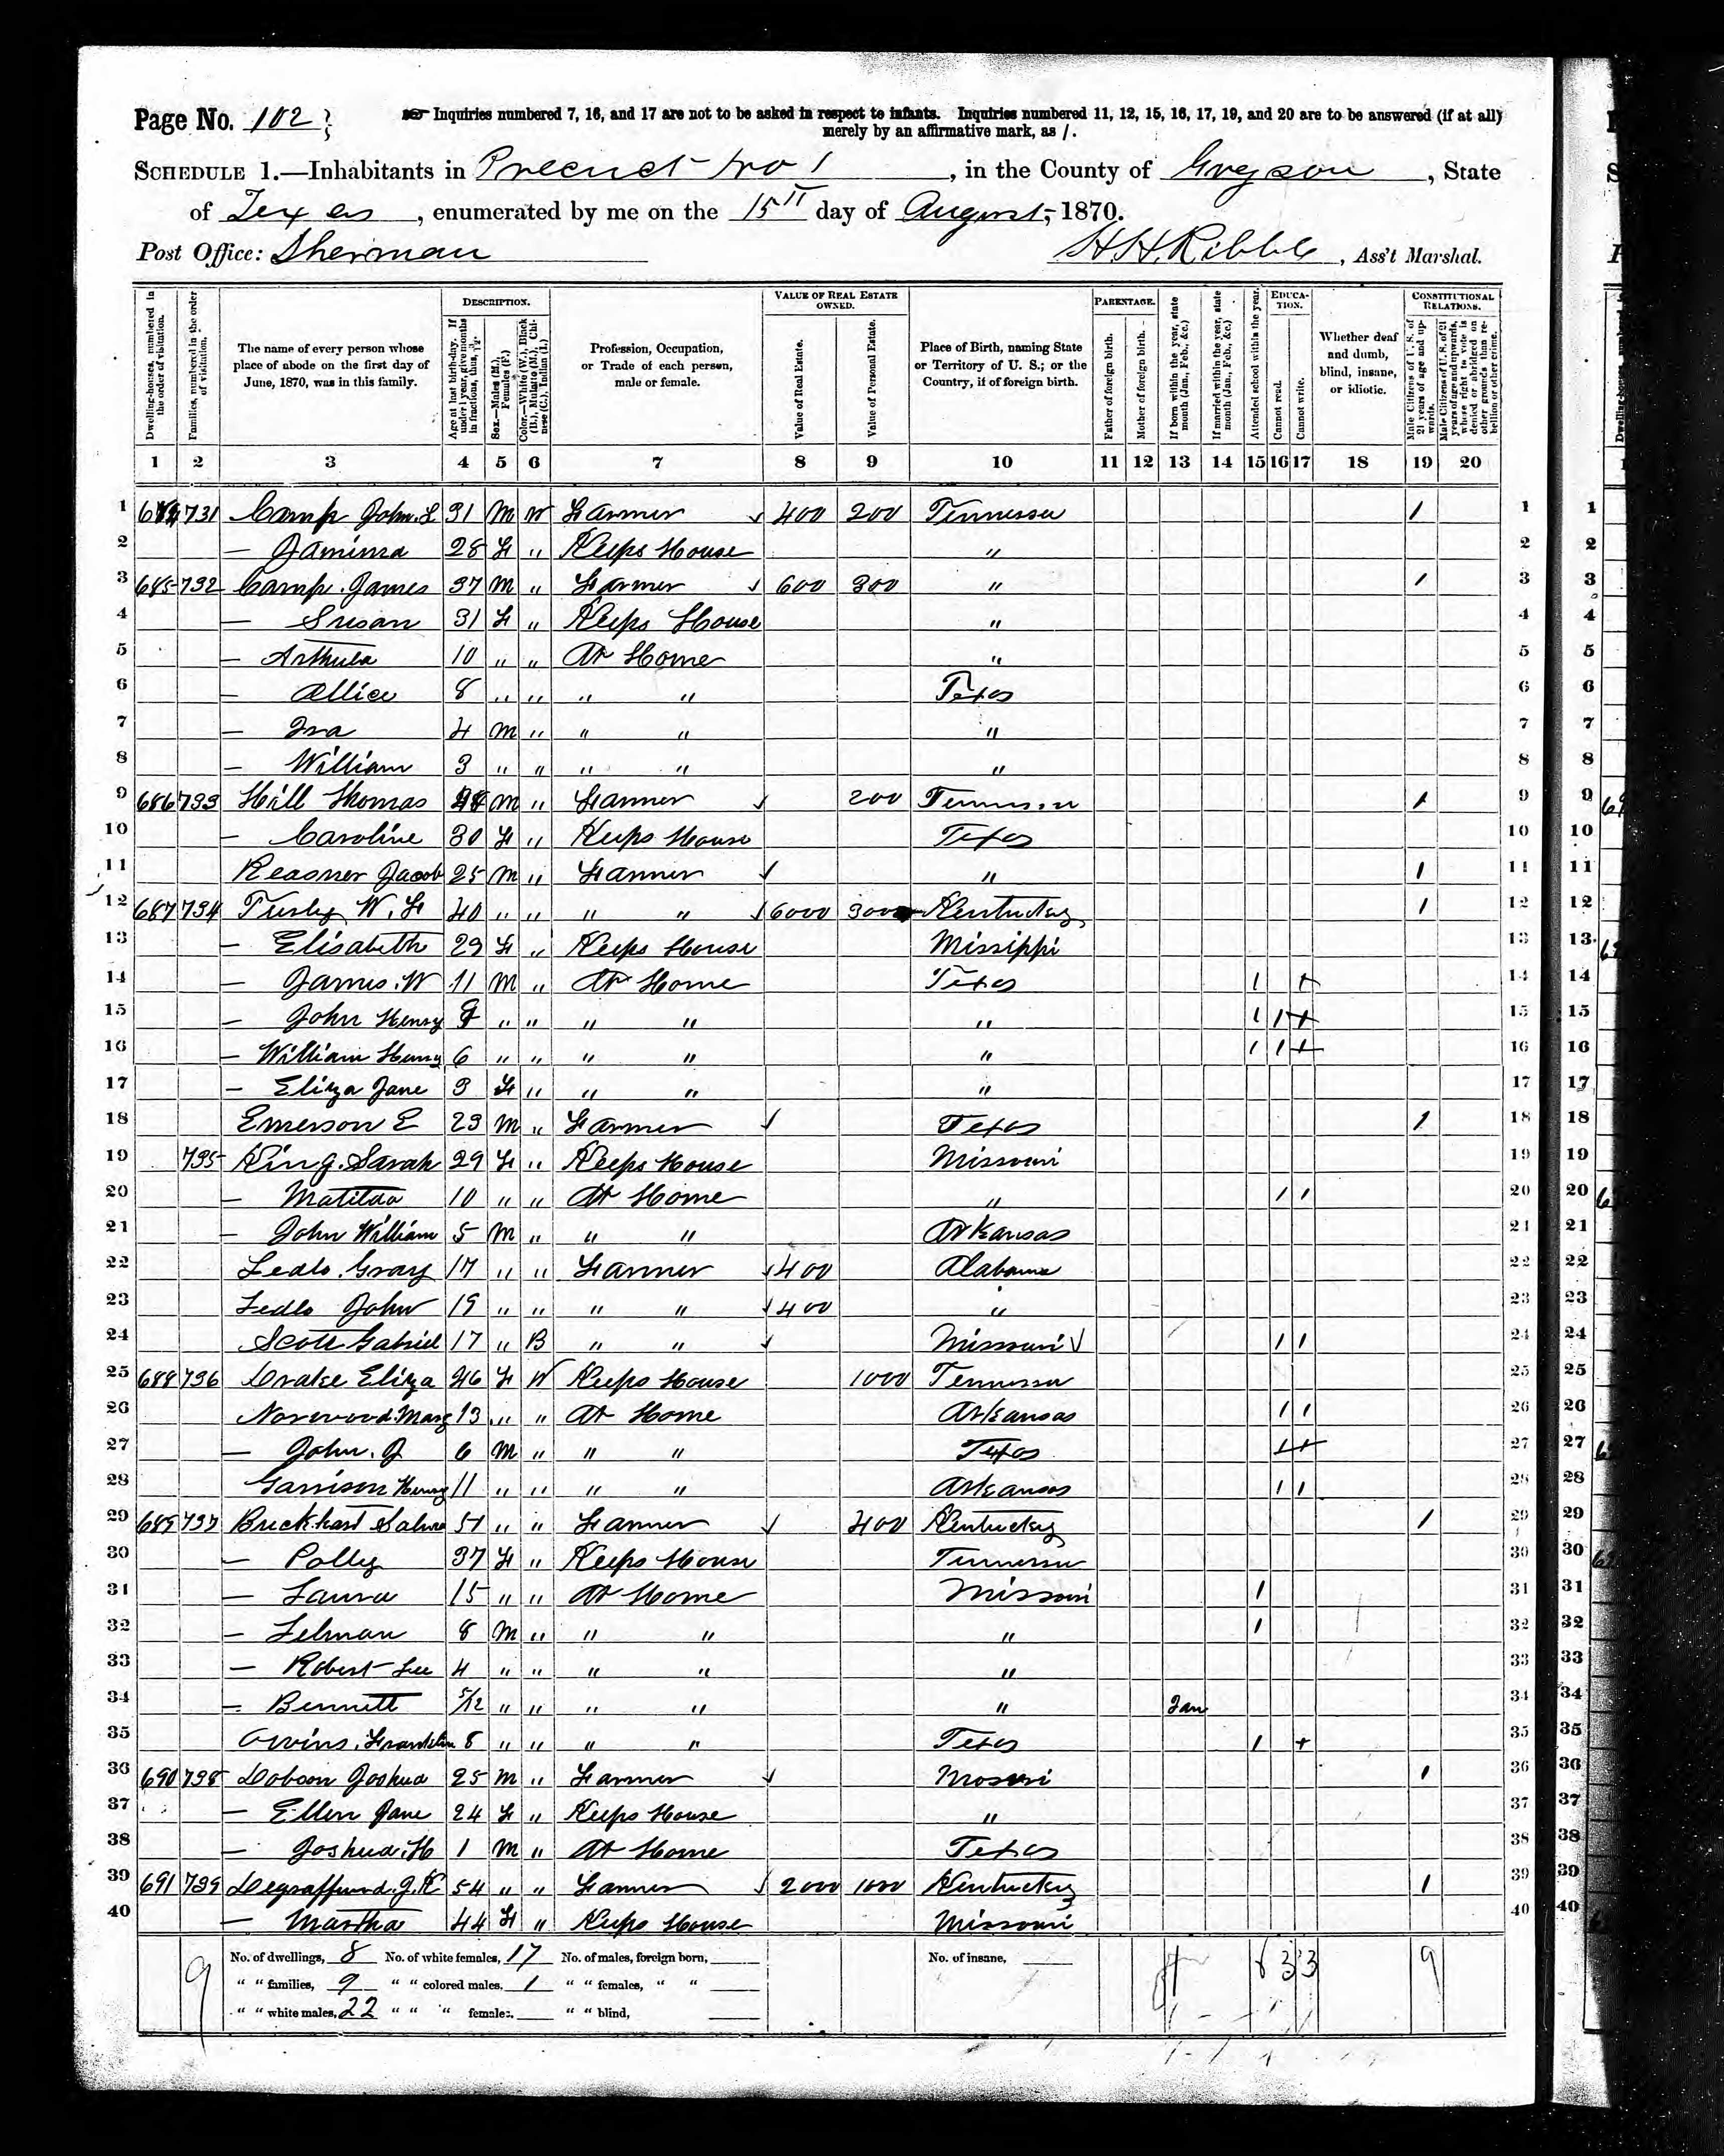 Page No. 102
Inquiries numbered 7, 16, and 17 are not to be asked in respect to infants. Inquiries numbered 11, 12, 15, 16, 17, 19, and 20 are to be answered (if at all)
merely by an affirmative mark, as /.
SCHEDULE 1.—Inhabitants in Precnct No 1, in the County of Grayson, State
of Texas, enumerated by me on the 15th day of August, 1870.
Post Office: Sherman H. H. Ribble, Ass't Marshal.
Dwelling-houses, numbered in the order of visitation.
Families, numbered in the order of visitation.
The name of every person whose place of abode on the first day of June, 1870, was in this family.
DESCRIPTION.
Age at last birth-day. If under 1 year, give months in fractions, thus, 3/12.
Sex.—Males (M.), Females (F.)
Color.—White (W.), Black (B.), Mulatto (M.), Chinese (C.), Indian (I.)
Profession, Occupation, or Trade of each person, male or female.
VALUE OF REAL ESTATE OWNED.
Value of Real Estate.
Value of Personal Estate.
Place of Birth, naming State or Territory of U. S.; or the Country, if of foreign birth.
PARENTAGE.
Father of foreign birth.
Mother of foreign birth.
If born within the year, state month (Jan., Feb., &c.)
If married within the year, state month (Jan., Feb., &c.)
Attended school within the year.
EDUCATION.
Cannot read.
Cannot write.
Whether deaf and dumb, blind, insane, or idiotic.
CONSTITUTIONAL RELATIONS.
Male Citizens of U. S. of 21 years of age and upwards.
Male Citizens of U. S. of 21 years of age and upwards, whose right to vote is denied or abridged on other grounds than rebellion or other crime.
1 2 3 4 5 6 7 8 9 10 11 12 13 14 15 16 17 18 19 20
1 684 731 Camp John. L 31 M W Farmer 400 200 Tennessee / 1
2 — Jamima 28 F " Keeps House " 2
3 685 732 Camp. James 37 M " Farmer 600 300 " / 3
4 — Susan 31 F " Keeps House " 4
5 — Arthula 10 " " At Home " 5
6 — Allice 8 " " " " Texas 6
7 — Ira 4 M " " " " 7
8 — William 3 " " " " " 8
9 686 733 Hill Thomas M " Farmer 200 Tennessee / 9
10 — Caroline 30 F " Keeps House Texas 10
11 Reasner Jacob 25 M " Farmer " / 11
12 687 734 W. F 40 " " " " 6000 3000 Kentucky / 12
13 — Elisabeth 29 F " Keeps House Missippi 13
14 — James. W 11 M " At Home Texas / + 14
15 — John Henry " " " " " / / + 15
16 — William Henry 6 " " " " " / / + 16
17 — Eliza Jane 3 F " " " " 17
18 Emerson E 23 M " Farmer Texas / 18
19 735 King. Sarah 29 F " Keeps House Missouri 19
20 — Matilda 10 " " At Home " / / 20
21 — John William 5 M " " " Arkansas 21
22 Gray 17 " " Farmer 400 Alabama 22
23 John 19 " " " " 400 " 23
24 Scott Gabriel 17 " B " " Missouri / / 24
25 688 736 Drake Eliza 46 F W Keeps House 1000 Tennessee 25
26 Norwood. Marg 13 " " At Home Arkansas / / 26
27 — John. J 6 M " " " Texas + + 27
28 Garrison Henry 11 " " " " Arkansas / / 28
29 689 737 Buckhart 51 " " Farmer 400 Kentucky / 29
30 — Polly 37 F " Keeps House Tennessee 30
31 — Laura 15 " " At Home Missouri / 31
32 — Lilman 8 M " " " " / 32
33 — Robert Lee 4 " " " " " 33
34 — Bennett 5/12 " " " " " Jan 34
35 Franklin 8 " " " " Texas / + 35
36 690 738 Dobson Joshua 25 M " Farmer Mosuri / 36
37 — Ellen Jane 24 F " Keeps House " 37
38 — Joshua. H 1 M " At Home Texas 38
39 691 739 Degraffenrd. J. K 54 " " Farmer 2000 1000 Kentucky / 39
40 — Martha 44 F " Keeps House Missouri 40
No. of dwellings, 8 No. of white females, 17 No. of males, foreign born, No. of insane,
" " families, 9 " " colored males, 1 " " females, " "
" " white males, 22 " " " females, " " blind,
9 6 3 3 9